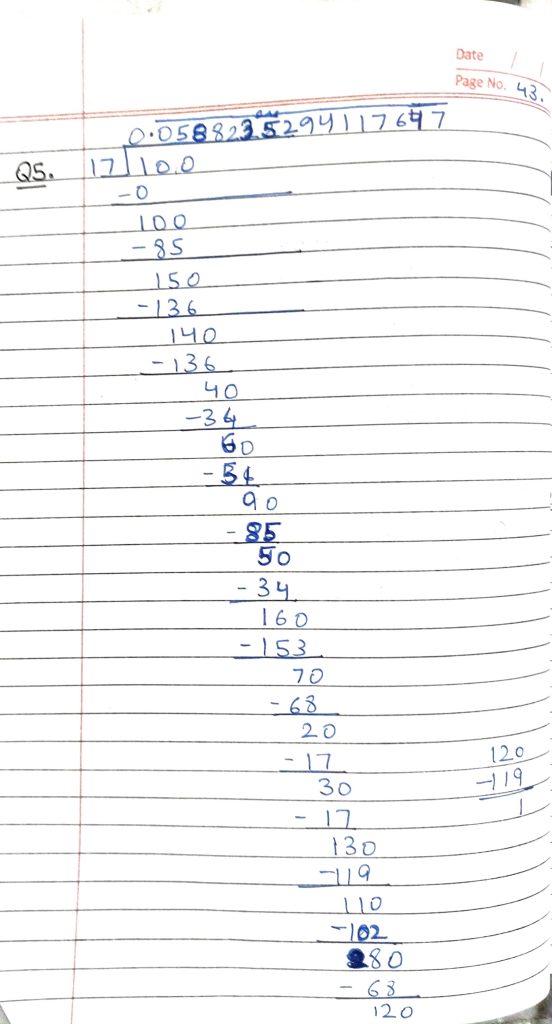 Date / /
Page No. 43.
0.0588235294117647
Q5. 17 10.0
-0
100
-85
150
-136
140
-136
40
-34
60
-51
90
-85
50
-34
160
-153
70
-68
20
-17
120
30
-119
1
-17
130
-119
110
-102
80
-68
120